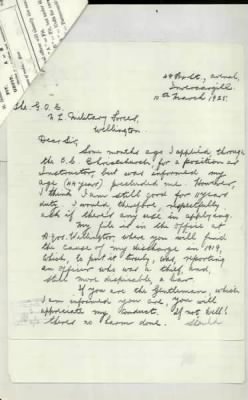 Invercargill
10th March, 1925.
The G.O.C.
N.Z. Military Forces,
Wellington.
Dear Sir,
Some months ago I applied, through
the O.C. Christchurch, for a position as
Instructor, but was informed my
age (44 years) precluded me. However,
I think I am still good for 10 years
duty. I would, therefore, respectfully
ask if there's any use in applying.
My file is in the office at
Hqrs. Wellington where you will find
the cause of my discharge in 1919,
which, to put it truly, was, reporting
an officer who was a thief, and,
still more disreputable, a liar.
If you are the Gentleman, which
I am informed you are, you will
appreciate my conduct. If not Well!
there's no harm done. Should